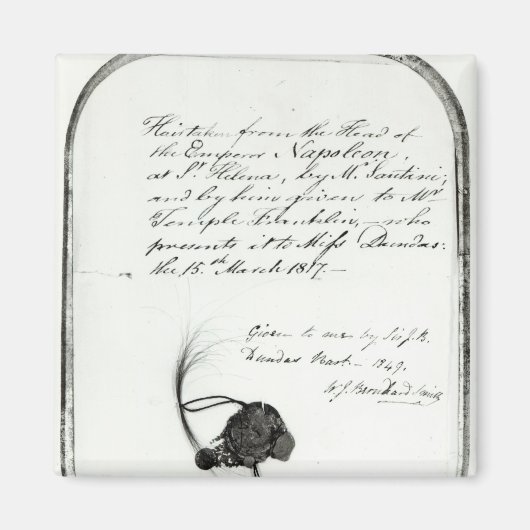 Hair taken from the Head of
the Emperor Napoleon,
at St Helena, by Mr. Santini;
and by him given to Mr
Temple Franklin, — who
presents it to Miss Dundas:
the 15.th March 1817. —
Given to me by Sir J. B.
Dundas Bart — 1849.
W. J. Bernhard Smith